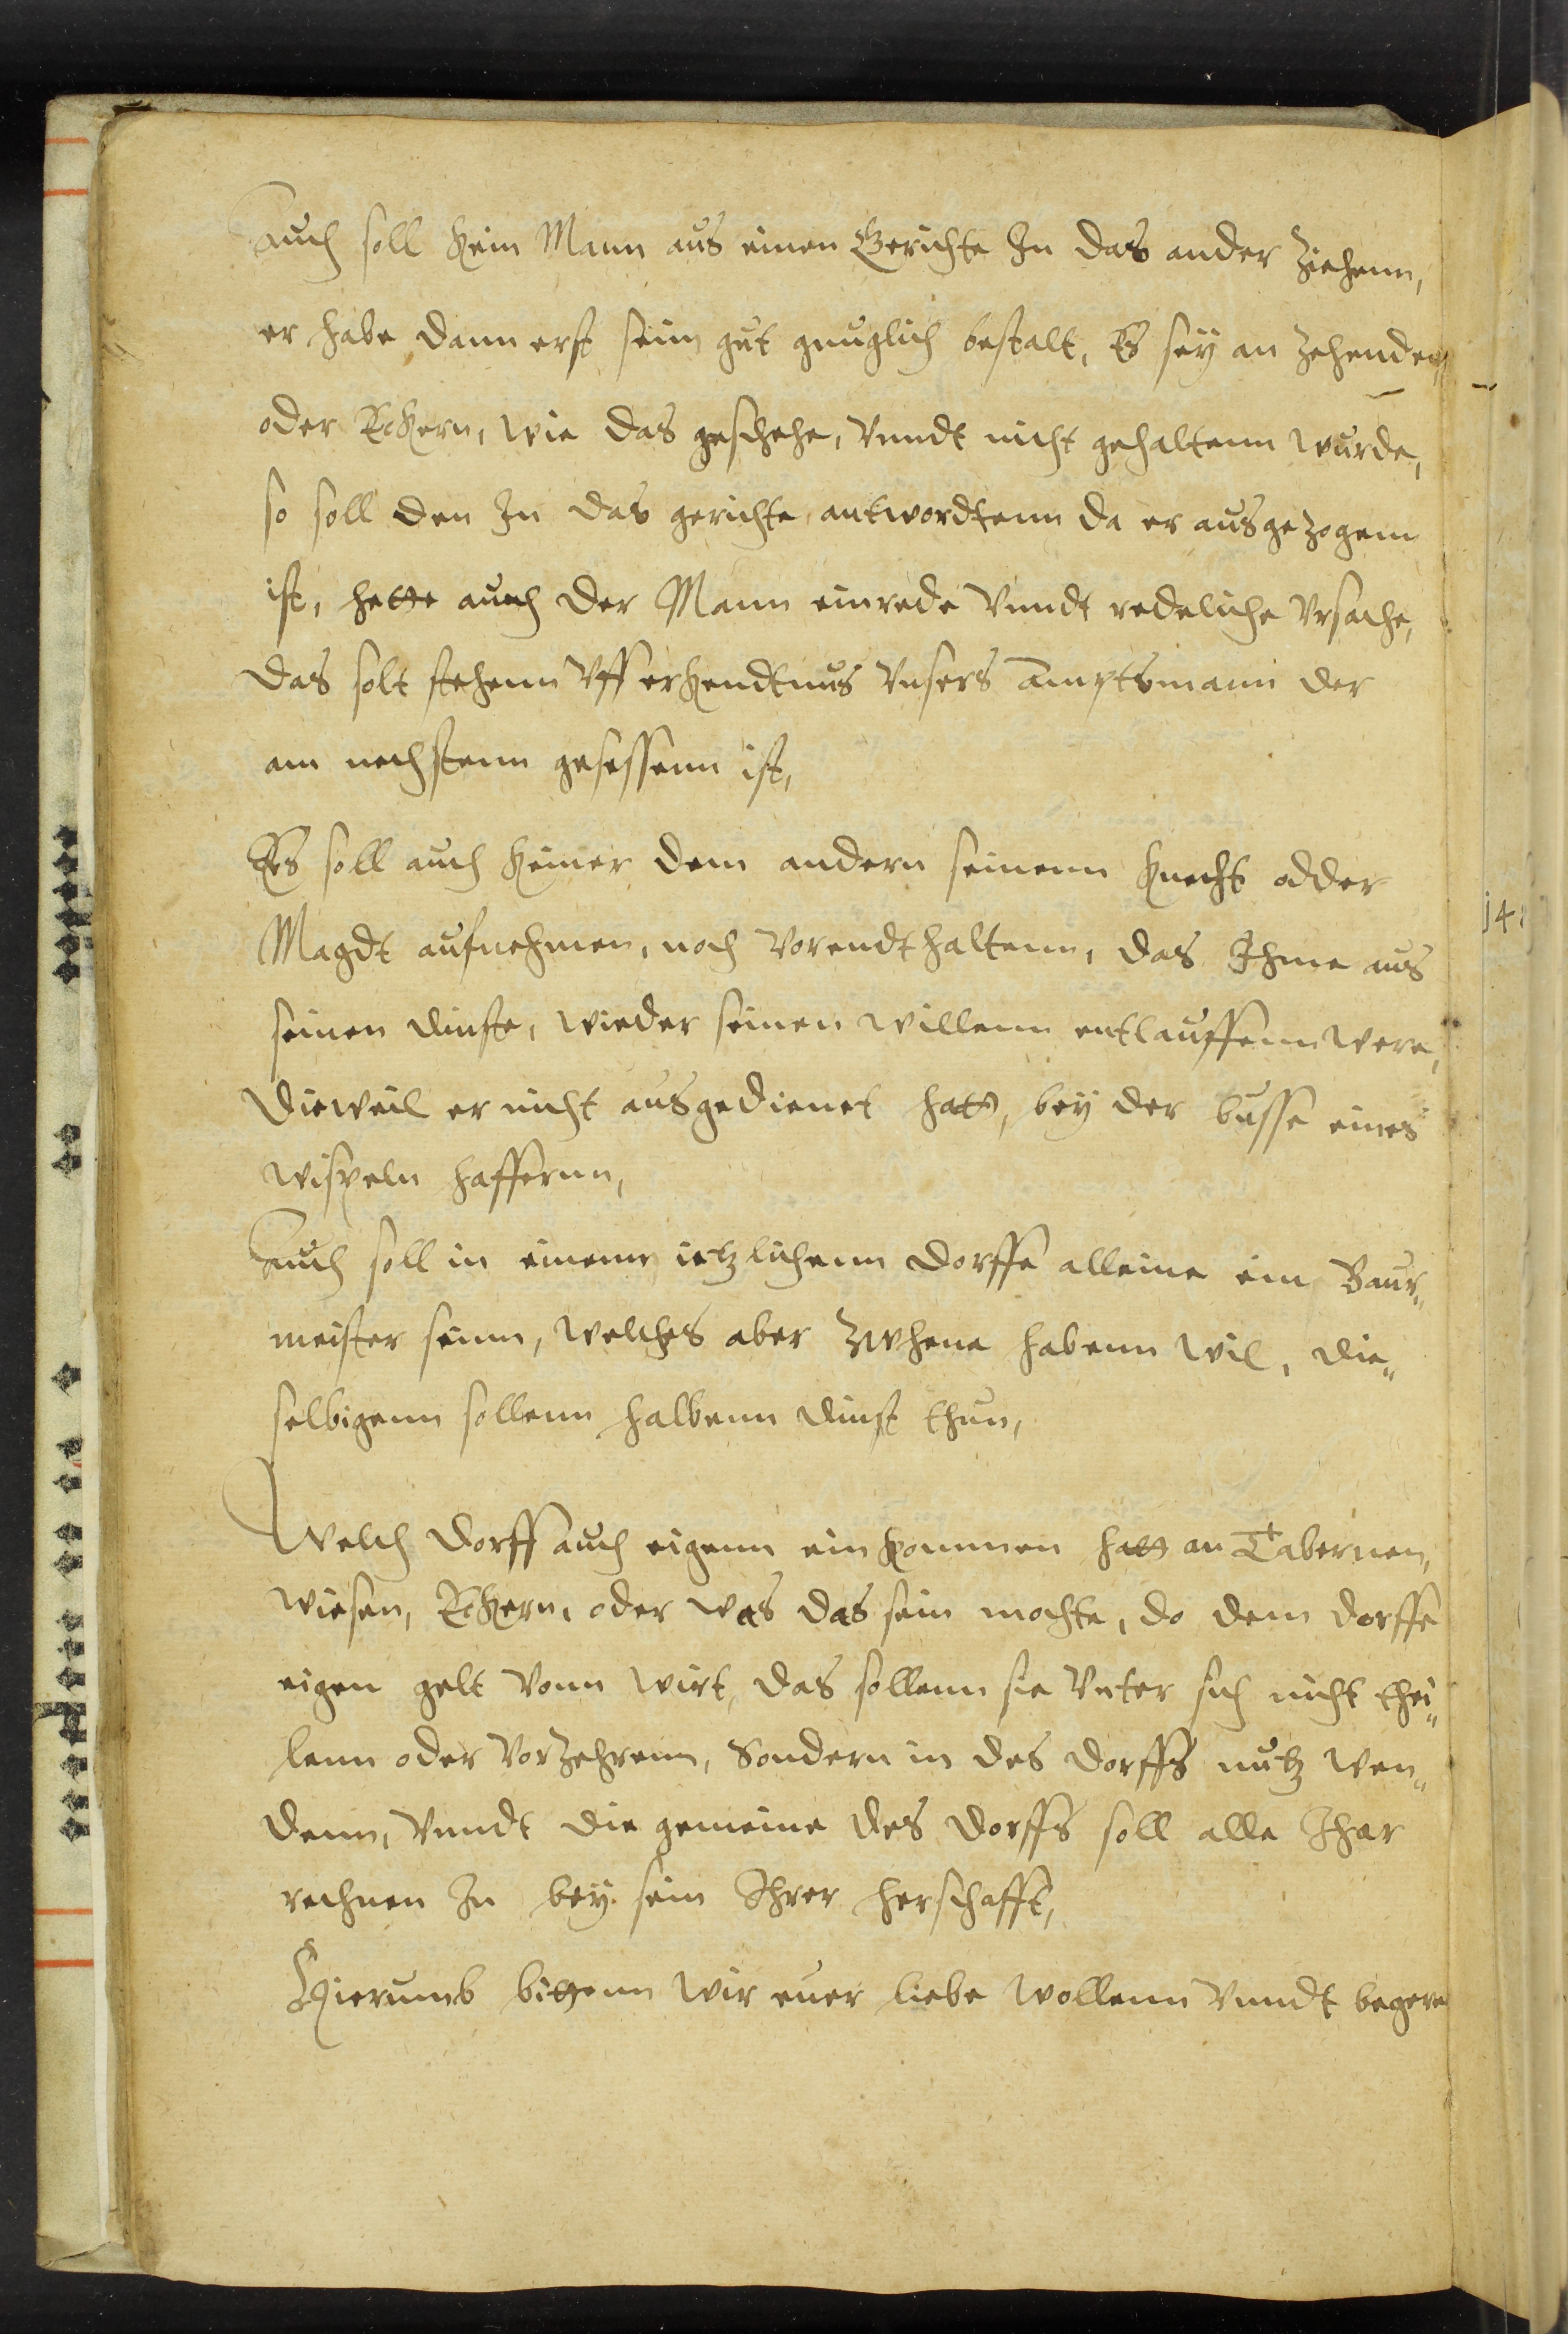 Auch soll kein Mann aus einen Gerichte In das ander ziehenn,
er habe dann erst sein gut gnuglich bestalt, Es sey an zehenden
oder Eckern, wie das geschehe, Vnndt nicht gehaltenn wurde,
so soll den In das gerichte antwordtenn da er ausgezogenn
ist, hette auch der Mann einrede Vnndt redeliche Vrsache,
das solt stehenn Vff erkendtnus Vnsers Amptsmann der
am nechstenn gesessenn ist,
Es soll auch keiner dem andern seinenn knecht odder
Magdt aufnehmen, noch Vorendthaltenn, das Ihme aus
seinen dinste, wieder seinen willenn entlauffenn were,
dieweil er nicht ausgedienet hatt, bey der busse eines
wispeln haffernn,
Auch soll in einem ietzlichenn dorffe alleine ein Baur„
meister seinn, welches aber zwhene habenn wil, die„
selbigenn sollenn halbenn dinst thun,
Welch dorff auch eigenn ein kommen hatt an Tabernen,
wiesen, Eckern, oder was das sein mochte, do dem dorffe
eigen gelt Vonn wirt, das sollenn sie Vnter sich nicht thei„
lenn oder Vorzehrenn, Sondern in des dorffs nutz wen„
denn, Vnndt die gemeine des dorffs soll alle Ihar
rechnen In bey sein Ihrer herschafft,
Hierumb bittenn wir euer liebe wollenn Vnndt begern